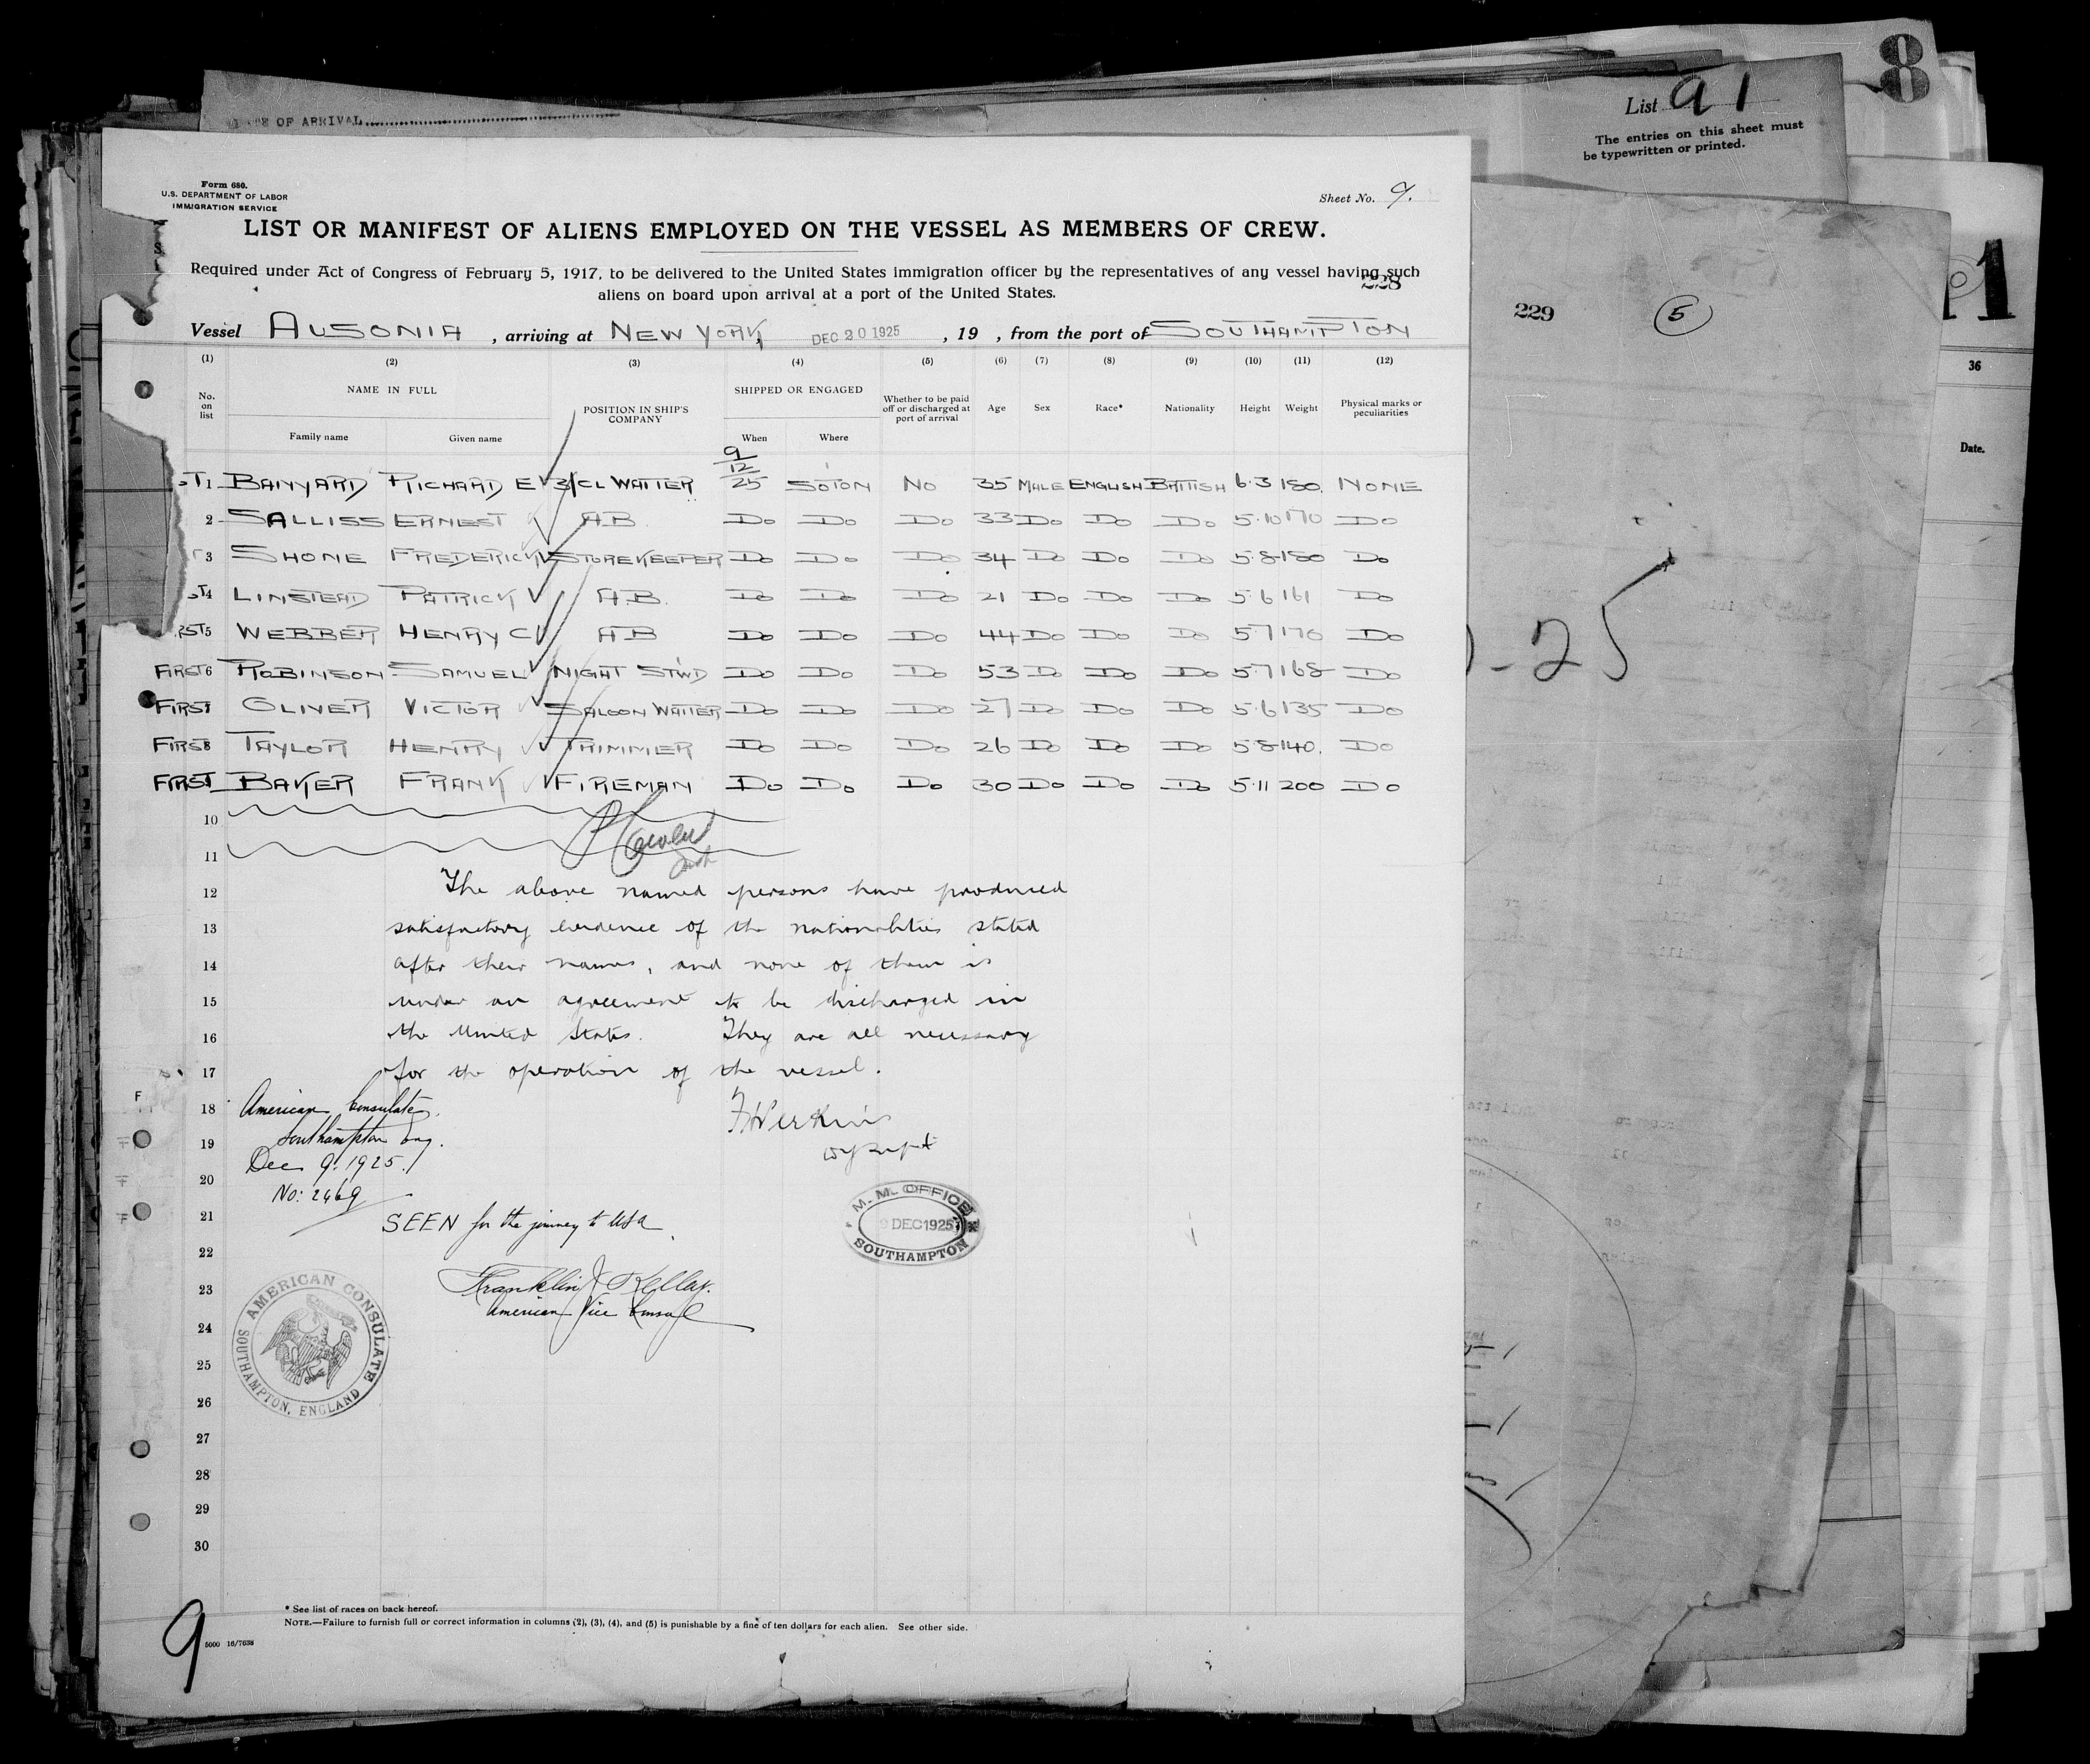 OF ARRIVAL
8
List 91
The entries on this sheet must
be typewritten or printed.
Form 680.
U.S. DEPARTMENT OF LABOR
IMMIGRATION SERVICE
Sheet No. 9.
LIST OR MANIFEST OF ALIENS EMPLOYED ON THE VESSEL AS MEMBERS OF CREW.
Required under Act of Congress of February 5, 1917, to be delivered to the United States immigration officer by the representatives of any vessel having such
aliens on board upon arrival at a port of the United States.
228
Vessel AUSONIA, arriving at NEW YORK, DEC 20 1925, 19 , from the port of SOUTHAMPTON
(1) (2) (3) (4) (5) (6) (7) (8) (9) (10) (11) (12)
No. on list NAME IN FULL Family name Given name POSITION IN SHIP'S COMPANY SHIPPED OR ENGAGED When Where Whether to be paid off or discharged at port of arrival Age Sex Race* Nationality Height Weight Physical marks or peculiarities
ST 1 BANYARD RICHARD E 3/CL WAITER 9/12/25 SOTON NO 35 MALE ENGLISH BRITISH 6·3 180. NONE
2 SALLISS ERNEST AB Do Do Do 33 Do Do Do 5·10 170 Do
3 SHONE FREDERICK STOREKEEPER Do Do Do 34 Do Do Do 5·8 180 Do
ST 4 LINSTEAD PATRICK A.B. Do Do Do 21 Do Do Do 5·6 161 Do
RST 5 WEBBER HENRY C AB Do Do Do 44 Do Do Do 5·7 170 Do
FIRST 6 ROBINSON SAMUEL NIGHT STWD Do Do Do 53 Do Do Do 5·7 168 Do
FIRST 7 OLIVER VICTOR SALOON WAITER Do Do Do 27 Do Do Do 5·6 135 Do
FIRST 8 TAYLOR HENRY TRIMMER Do Do Do 26 Do Do Do 5·8 140. Do
FIRST BAKER FRANK FIREMAN Do Do Do 30 Do Do Do 5·11 200 Do
10
11
12 The above named persons have produced
13 satisfactory evidence of the nationalities stated
14 after their names, and none of them is
15 under an agreement to be discharged in
16 the United States. They are all necessary
17 for the operation of the vessel.
18 American Consulate,
19 Southampton Eng.
Dec. 9. 1925.
20
No: 2469
21 SEEN for the journey to USA
M. M. OFFICE
9 DEC 1925
SOUTHAMPTON
22
23 Franklin J Kelley.
American Vice Consul
24
AMERICAN CONSULATE
SOUTHAMPTON, ENGLAND
25
26
27
28
29
30
* See list of races on back hereof.
NOTE.—Failure to furnish full or correct information in columns (2), (3), (4), and (5) is punishable by a fine of ten dollars for each alien. See other side.
9
5000 16/7638
229
5
1
36
Date.
-25